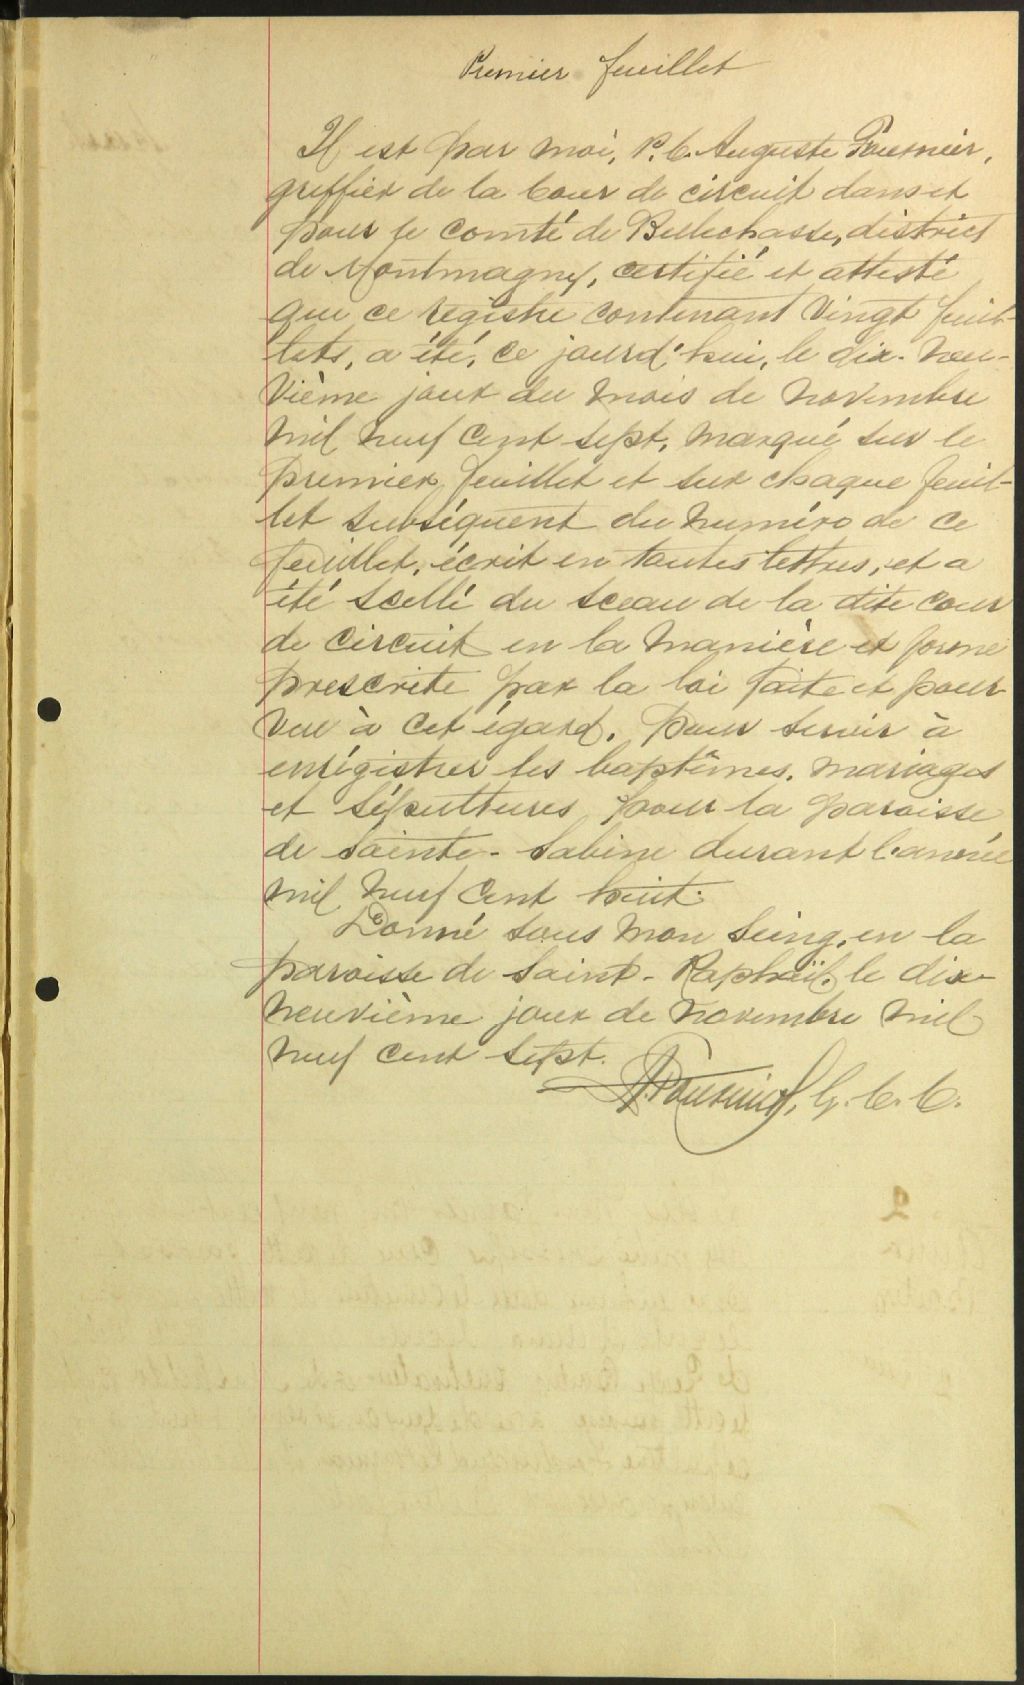 Premier feuillet
Il est par moi, P. C. Auguste Fournier,
greffier de la Cour de circuit dans et
pour le comté de Bellechasse, district
de Montmagny, certifié et attesté
que ce registre contenant vingt feuil-
lets, a été, ce jourd'hui, le dix-neu-
vième jour du mois de novembre
mil neuf cent sept, marqué sur le
premier feuillet et sur chaque feuil-
let subséquent du numéro de ce
feuillet, écrit en toutes lettres, et a
été scellé du sceau de la dite cour
de circuit en la manière et forme
prescrite par la loi faite et pour-
vue à cet égard, pour servir à
enrégistrer les baptêmes, mariages
et sépultures pour la paroisse
de Sainte-Sabine durant l'année
mil neuf cent huit.
Donné sous mon seing, en la
paroisse de Saint-Raphaël, le dix-
neuvième jour de novembre mil
neuf cent sept.
A. Fournier, G. C. C.